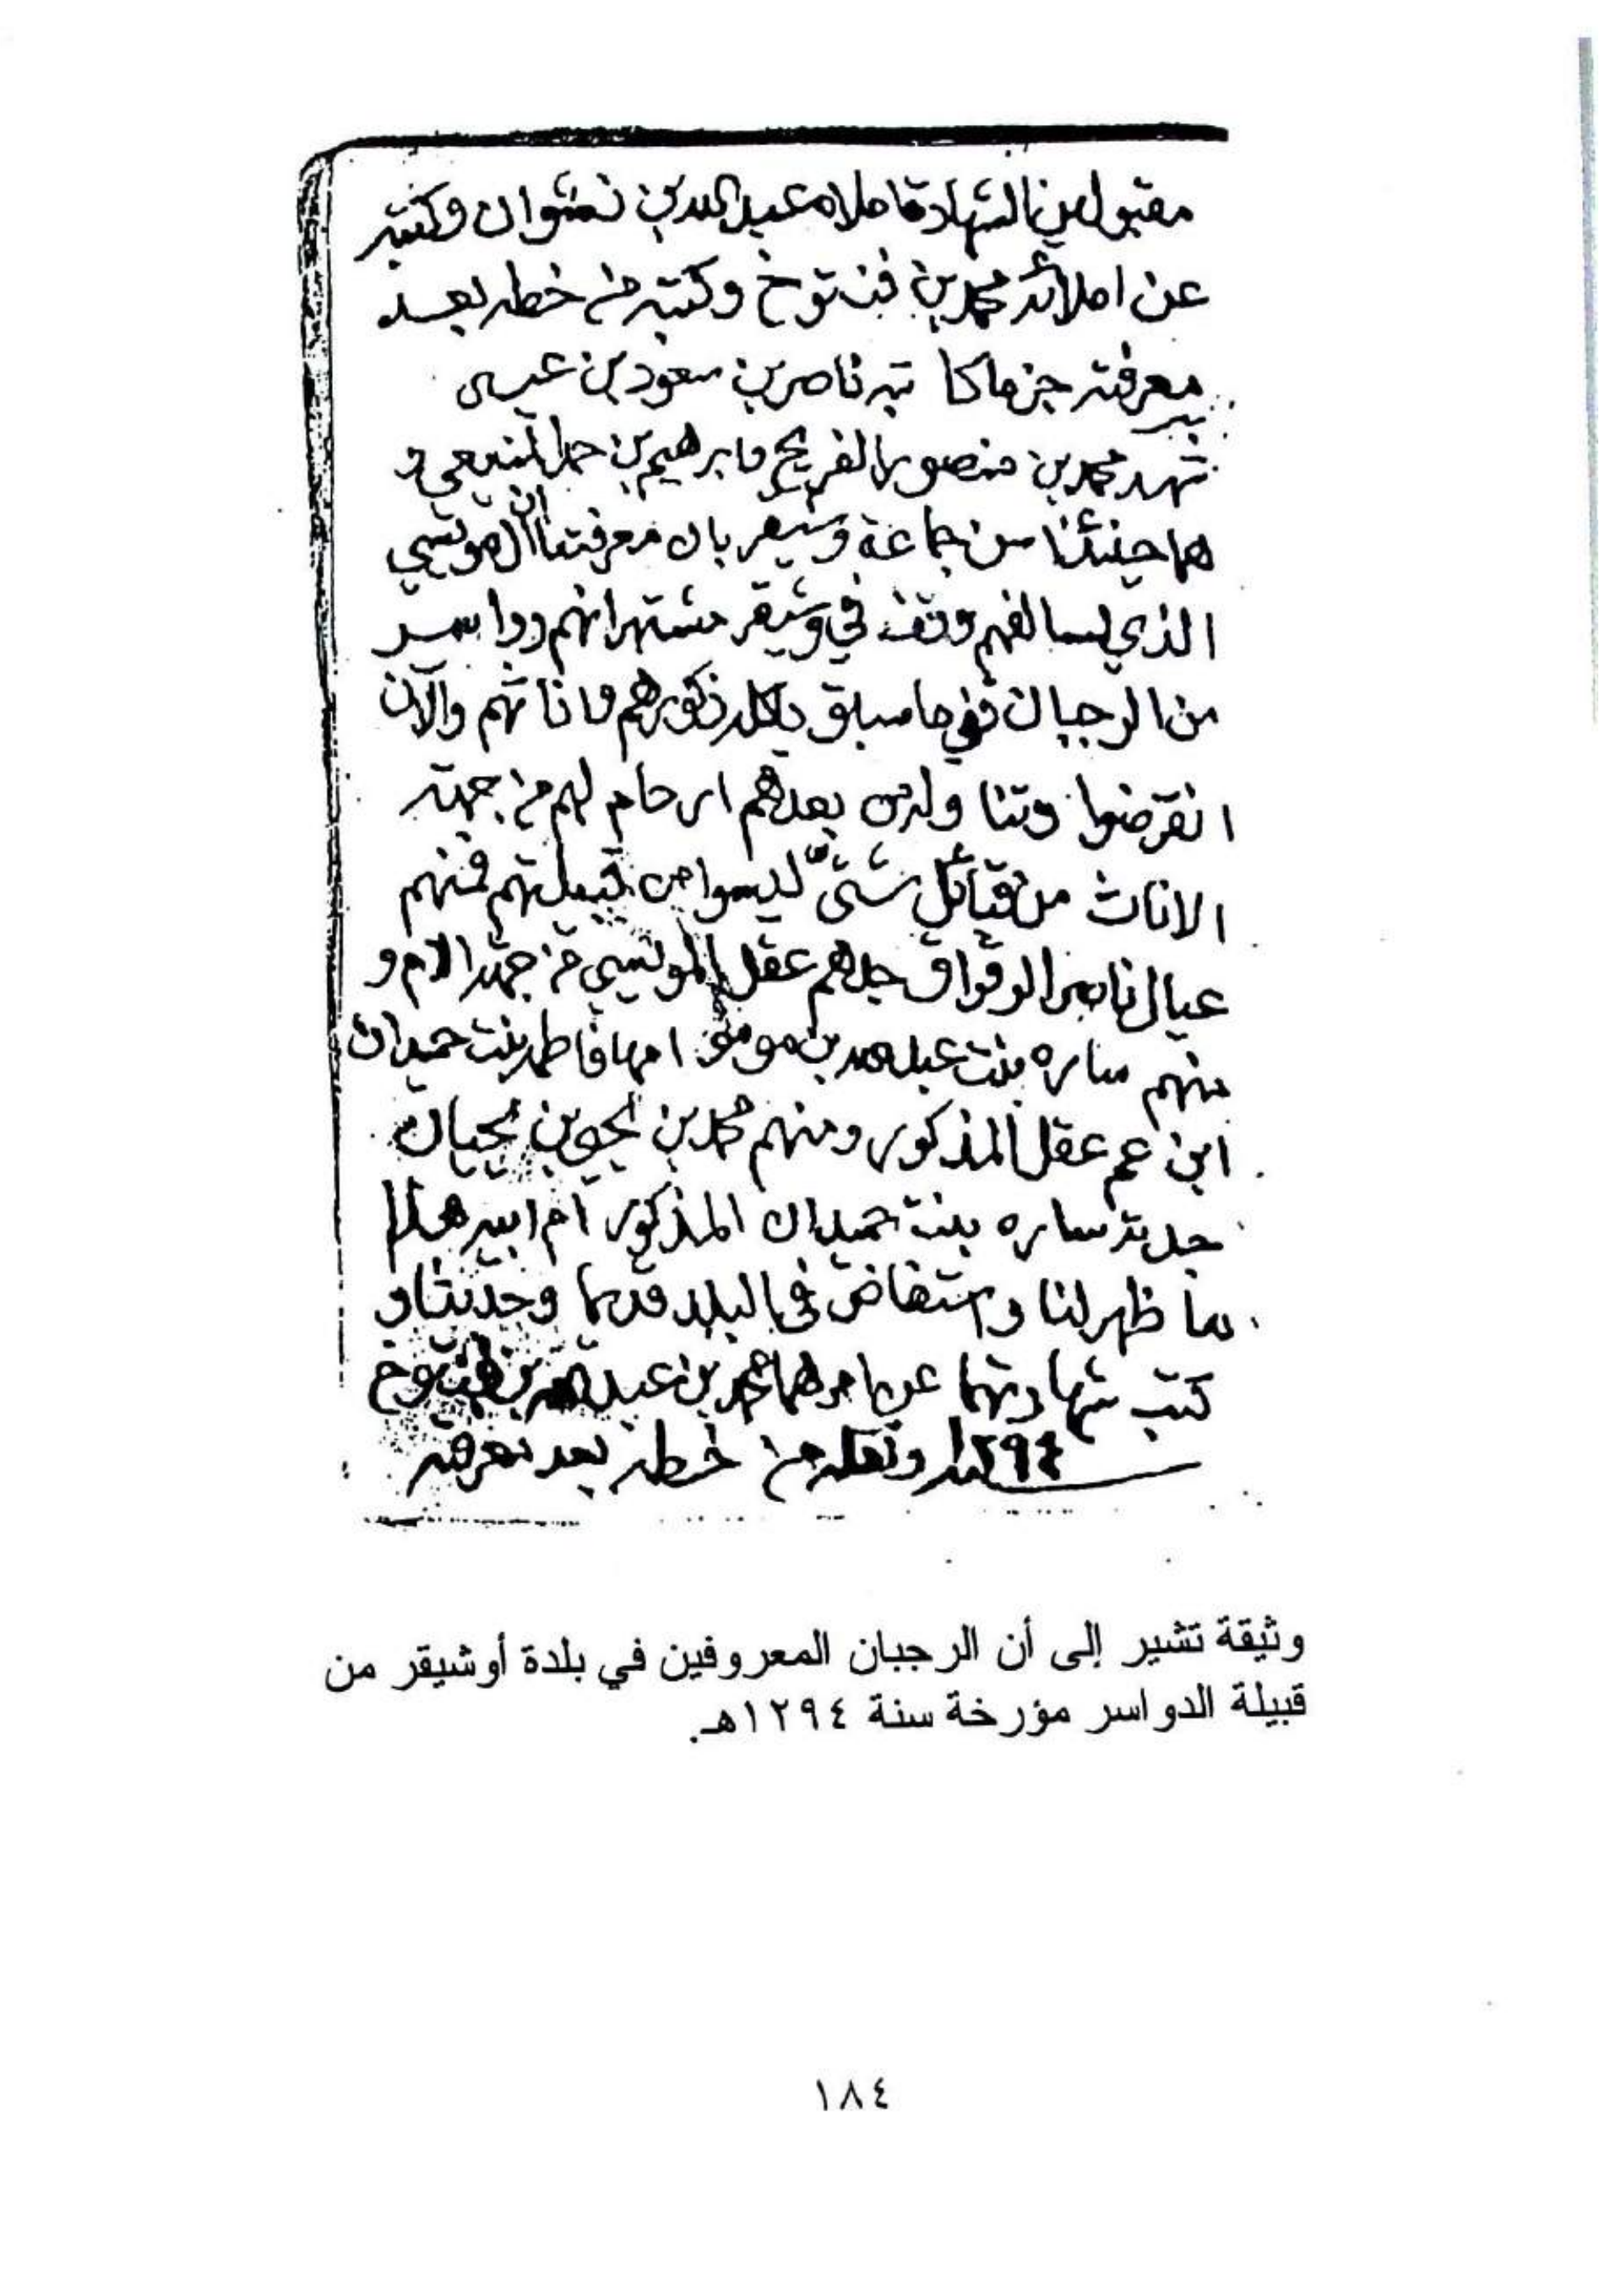 مقبولين الشهادة املاه عبدالله بن نشوان وكتبه
عن املائه محمد بن فنتوخ وكتبه من خطه بعد
معرفته جزما كاتبه ناصر بن سعود بن عيسى
شهد محمد بن منصور الفريح وابرهيم بن حمد المنيعي و
هما حينئذ من جماعة وشيقر بان معرفتنا ان المويسي
الذي لسالفهم وقف في وشيقر مشتهر انهم دواسر
من الرجبان في ما سبق ذكورهم واناثهم والآن
انقرضوا وتنا بعدهم ارحام لهم من جهة
الاناث من قبائل شتى ليسوا من قبيلتهم فمنهم
عيال ناصر الوقواق جدهم عقل المويسي من جهة الام و
منهم ساره بنت عبدالله بن امها فاطمه بنت حميدان
ابن عم عقل المذكور ومنهم محمد بن يحيى بن يحيان
جدته ساره بنت حميدان المذكور ام ابيه هذا
ما ظهر لنا واستفاض في البلد قديما وحديثا و
كتب شهادتهما عن امرهما محمد بن عبدالله بن فنتوخ
١٢٩٤ ونقله من خطه بعد معرفته
وثيقة تشير إلى أن الرجبان المعروفين في بلدة أوشيقر من
قبيلة الدواسر مؤرخة سنة ١٢٩٤هـ.
١٨٤